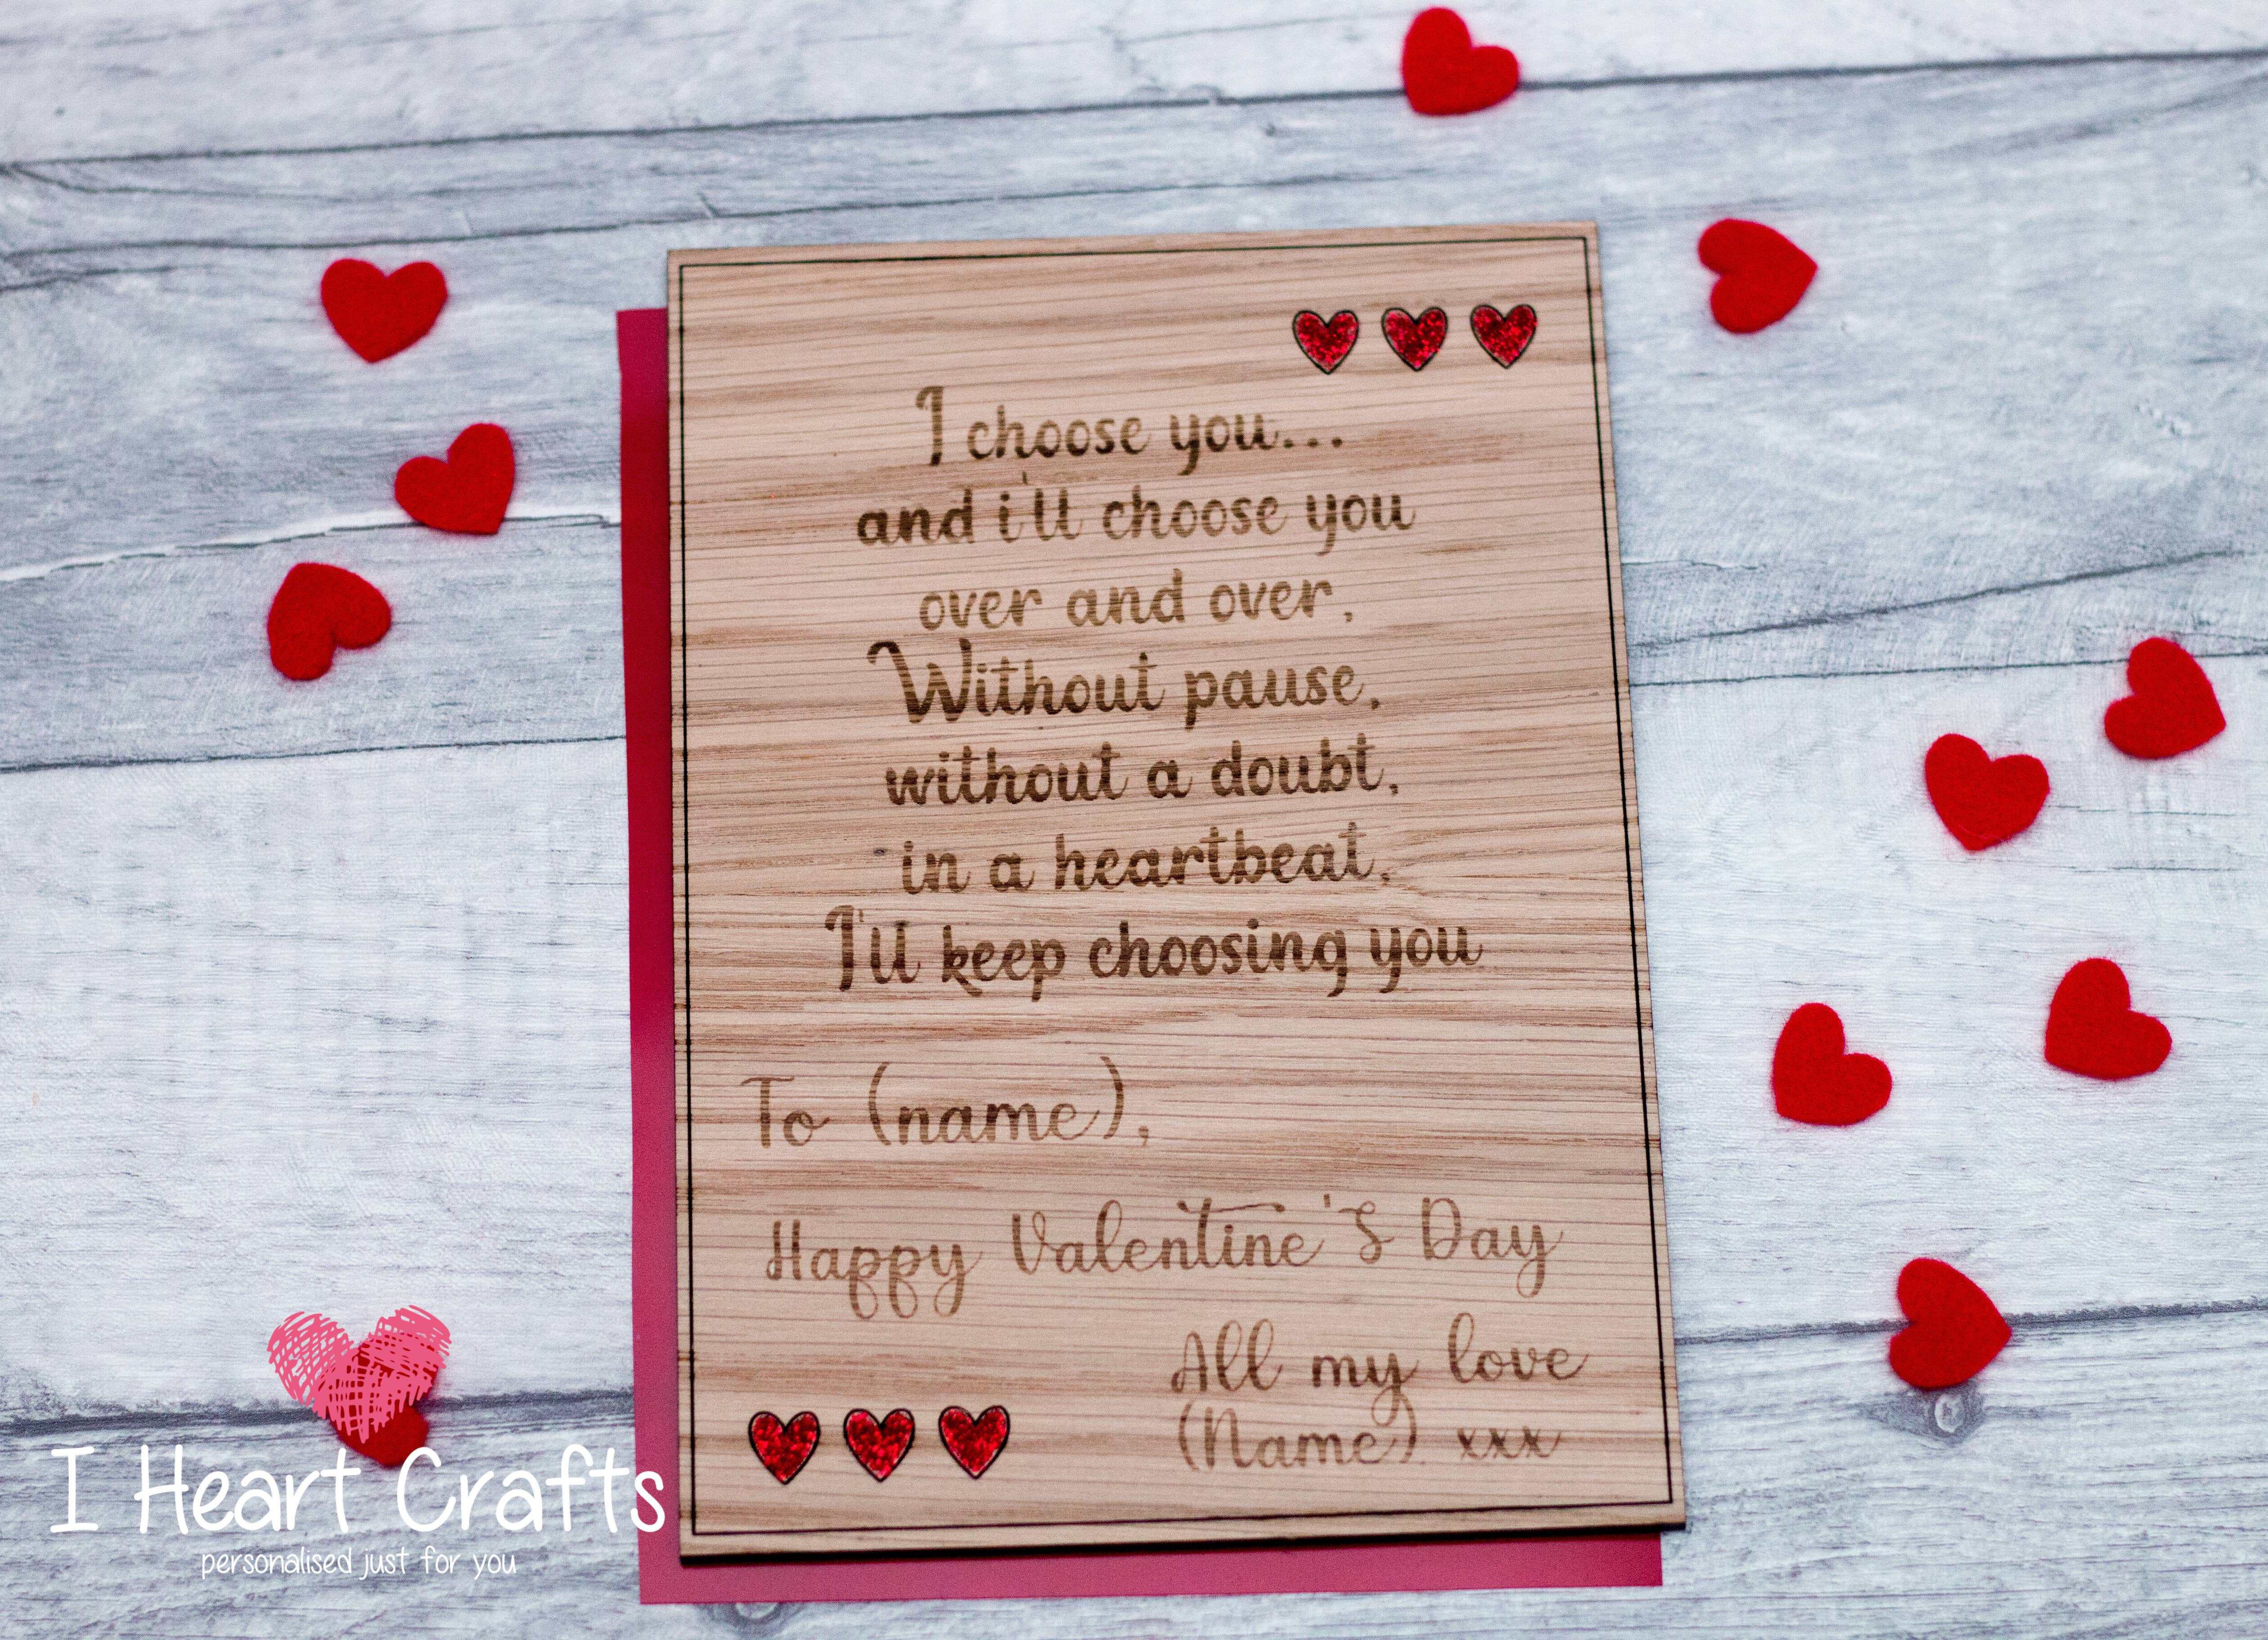 I choose you...
and i'll choose you
over and over,
Without pause,
without a doubt,
in a heartbeat,
I'll keep choosing you
To (name),
Happy Valentine'S Day
All my love
(Name) xxx
I Heart Crafts
personalised just for you